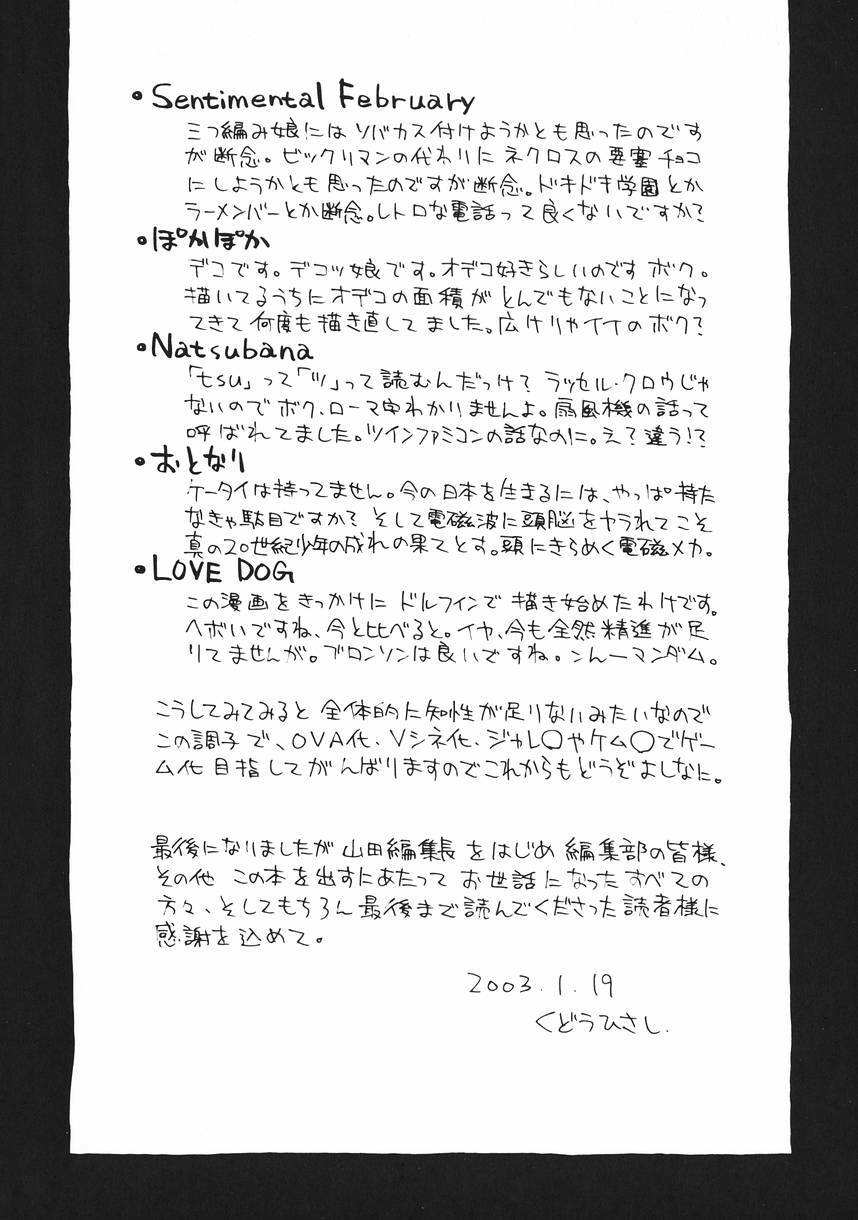 ・Sentimental February
三つ編み娘にはソバカス付けようかとも思ったのです
が断念。ビックリマンの代わりにネクロスの要塞チョコ
にしようかとも思ったのですが断念。ドキドキ学園とか
ラーメンバーとか断念。レトロな電話って良くないですか?
・ぽかぽか
デコです。デコッ娘です。オデコ好きらしいのですボク。
描いてるうちにオデコの面積がとんでもないことになっ
てきて何度も描き直してました。広けりゃイイのボク?
・Natsubana
「tsu」って「ツ」って読むんだっけ?ラッセル・クロウじゃ
ないのでボク、ローマ字わかりませんよ。扇風機の話って
呼ばれてました。ツインファミコンの話なのに。え?違う!?
・おとなり
ケータイは持ってません。今の日本を生きるには、やっぱ持た
なきゃ駄目ですか?そして電磁波に頭脳をヤラれてこそ
真の20世紀少年の成れの果てとす。頭にきらめく電磁メカ。
・LOVE DOG
この漫画をきっかけにドルフィンで描き始めたわけです。
ヘボいですね、今と比べると。イヤ、今も全然精進が足
りてませんが。ブロンソンは良いですね。ンんーマンダム。
こうしてみてみると全体的に知性が足りないみたいなので
この調子で、OVA化、Vシネ化、ジャレ○やケム○でゲー
ム化目指してがんばりますのでこれからもどうぞよしなに。
最後になりましたが山田編集長をはじめ編集部の皆様、
その他この本を出すにあたってお世話になったすべての
方々、そしてもちろん最後まで読んでくださった読者様に
感謝を込めて。
2003.1.19
くどうひさし.